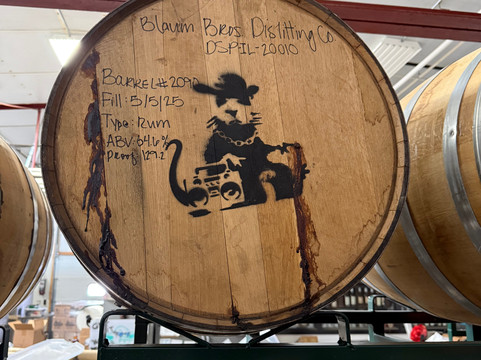 Blaum Bros Distilling Co
DSPIL-20010
Barrel# 2090
Fill: 5/5/25
Type: Rum
ABV: 64.6%
Proof: 129.2